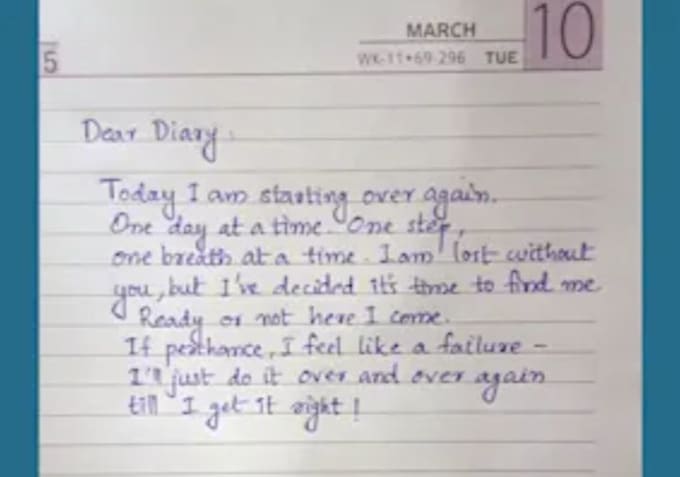 5
MARCH
10
WK-11•69-296 TUE
Dear Diary.
Today I am starting over again.
One day at a time. One step,
one breath at a time. I am lost without
you, but I've decided it's time to find me.
Ready or not here I come.
If perchance, I feel like a failure -
I'll just do it over and over again
till I get it right!